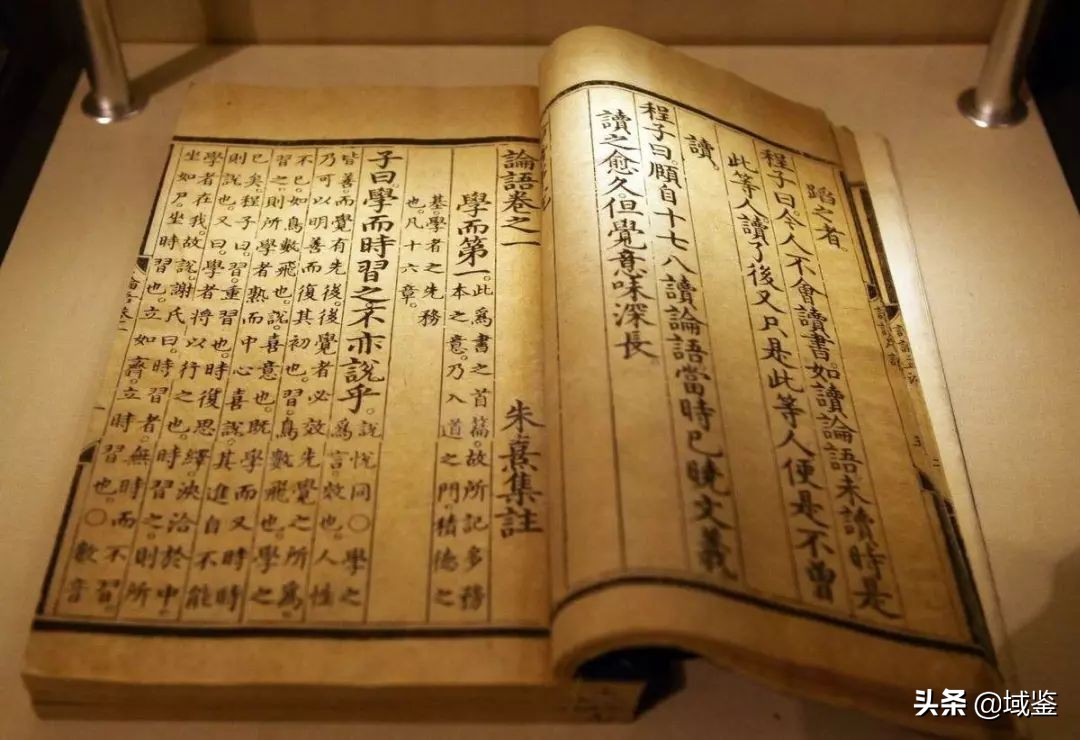 蹈之者。
程子曰。今人不會讀書。如讀論語。未讀時是
此等人。讀了後又只是此等人。便是不曾
讀。
程子曰。頤自十七八讀論語。當時已曉文義
讀之愈久。但覺意味深長
論語卷之一 朱熹集註
學而第一。此爲書之首篇。故所記多務
本之意。乃入道之門。積德之
基。學者之先務
也。凡十六章。
子曰。學而時習之。不亦說乎。說悅同○學之
爲言效也。人性
皆善。而覺有先後。後覺者必效先覺之所爲
乃可以明善而復其初也。習。鳥數飛也。學之
不已。如鳥數飛也。說。喜意也。既學而又時時
習之。則所學者熟而中心喜說。其進自不能
已矣。程子曰。習。重習也。時復思繹。浹洽於中
則說也。又曰。學者將以行之也。時習之。則所
學者在我。故說。謝氏曰。時習者。無時而不習。
坐如尸。坐時習也。立如齊。立時習也。○數音
头条 @域鉴